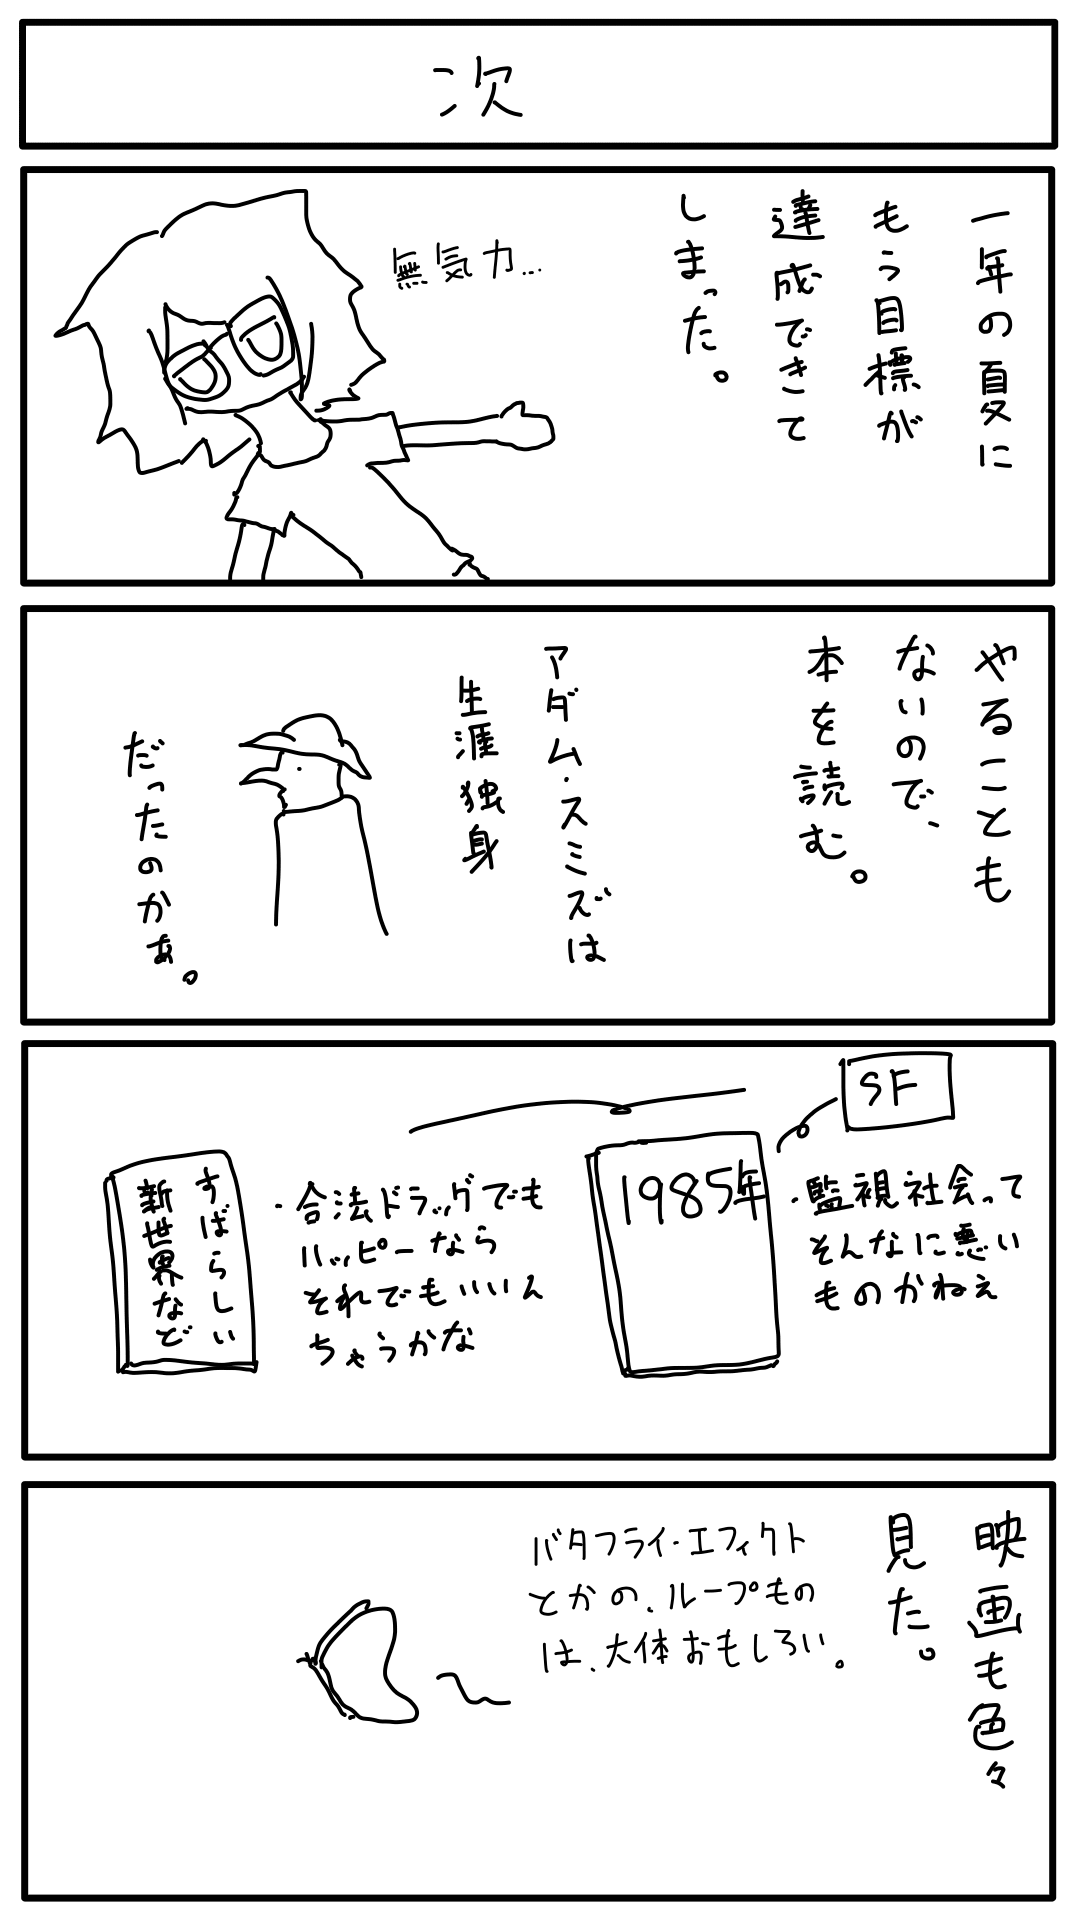 次
一年の夏に
もう目標が
達成できて
しまった。
無気力…
やることも
ないので、
本を読む。
アダム・スミスは
生涯独身
だったのかぁ。
SF
・監視社会って
そんなに悪い
ものかねぇ
1985年
・合法ドラッグでも
ハッピーなら
それでもいいん
ちゃうかな
すばらしい
新世界など
映画も色々
見た。
バタフライ・エフィクト
とかの、ループもの
は、大体おもしろい。